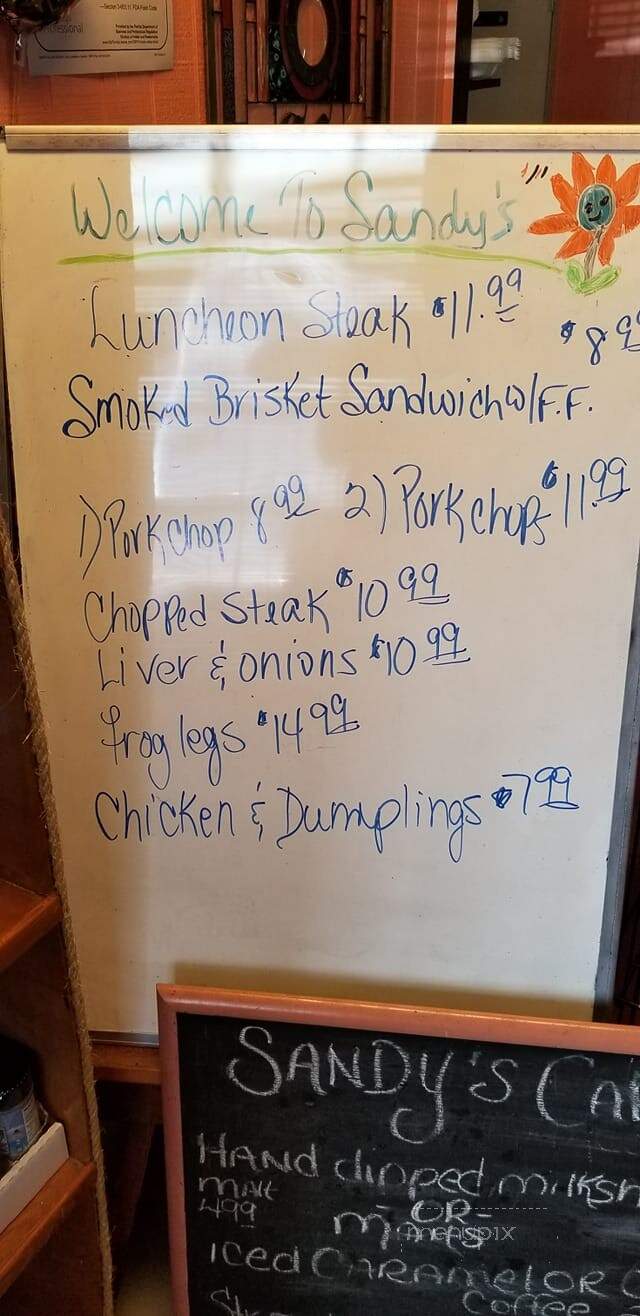 Welcome To Sandy's
Luncheon Steak $11.99
$8 99
Smoked Brisket Sandwich w/F.F.
1) Pork chop 8 99 2) Pork chops $11 99
Chopped Steak $10 99
Liver & onions $10 99
frog legs $14 99
Chicken & Dumplings $7 99
SANDY'S
HAND dipped
malt OR
4 99
menupix
iced CARAMEL OR
Coffee